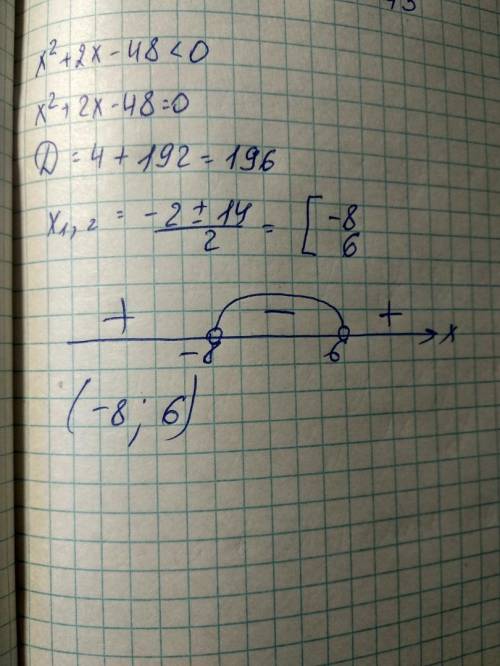 x²+2x-48<0
x²+2x-48=0
D=4+192=196
x₁,₂ = (-2±14)/2 = [-8 6
+ - +
-8 6 x
(-8; 6)